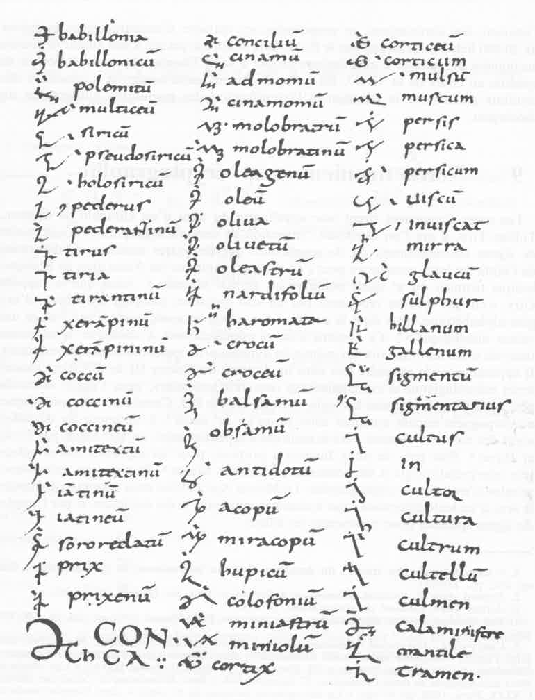 babillonia
babillonicū
polemitū
multiceū
siricū
pseudosiricū
holosiricū
pederus
tirus
tiria
tirantinū
xerāpinū
xerāpininū
coccū
coccinū
coccineū
amitextū
amitextinū
iātinū
iatineū
prix
prixenū
CON.
conciliū
cinamū
admomū
cinamomū
molobatrū
molobatinū
oleagenū
oleū
oliua
oliuetū
oleastrū
nardifoliū
haromata
crocū
croceū
balsamū
obsamū
antidotū
acopū
miracopū
hupicū
colofoniū
miniastrū
miniolū
cortix
corticeū
corticum
mulsū
muscum
persis
persica
persicum
uiscū
inuiscat
mirra
glaucū
sulphur
billanum
gallenum
sigmentū
sigmentarius
cultus
in
cultor
cultura
cultrum
cultellū
culmen
calamistre
mantile
tramen.